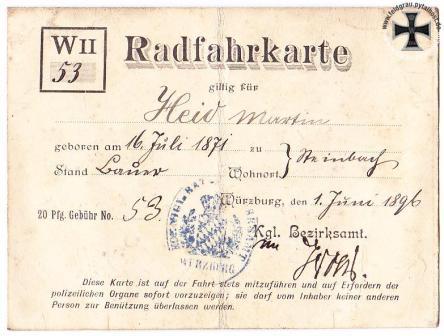 www.feldgrau.pytalhost.de
W II
53
Radfahrkarte
giltig für
Heid Martin
geboren am 16. Juli 1871 zu
Stand Bauer Wohnort } Steinbach
Würzburg, den 1. Juni 1896
20 Pfg. Gebühr No. 53
Kgl. Bezirksamt.
WÜRZBURG
Diese Karte ist auf der Fahrt stets mitzuführen und auf Erfordern der
polizeilichen Organe sofort vorzuzeigen; sie darf vom Inhaber keiner anderen
Person zur Benützung überlassen werden.